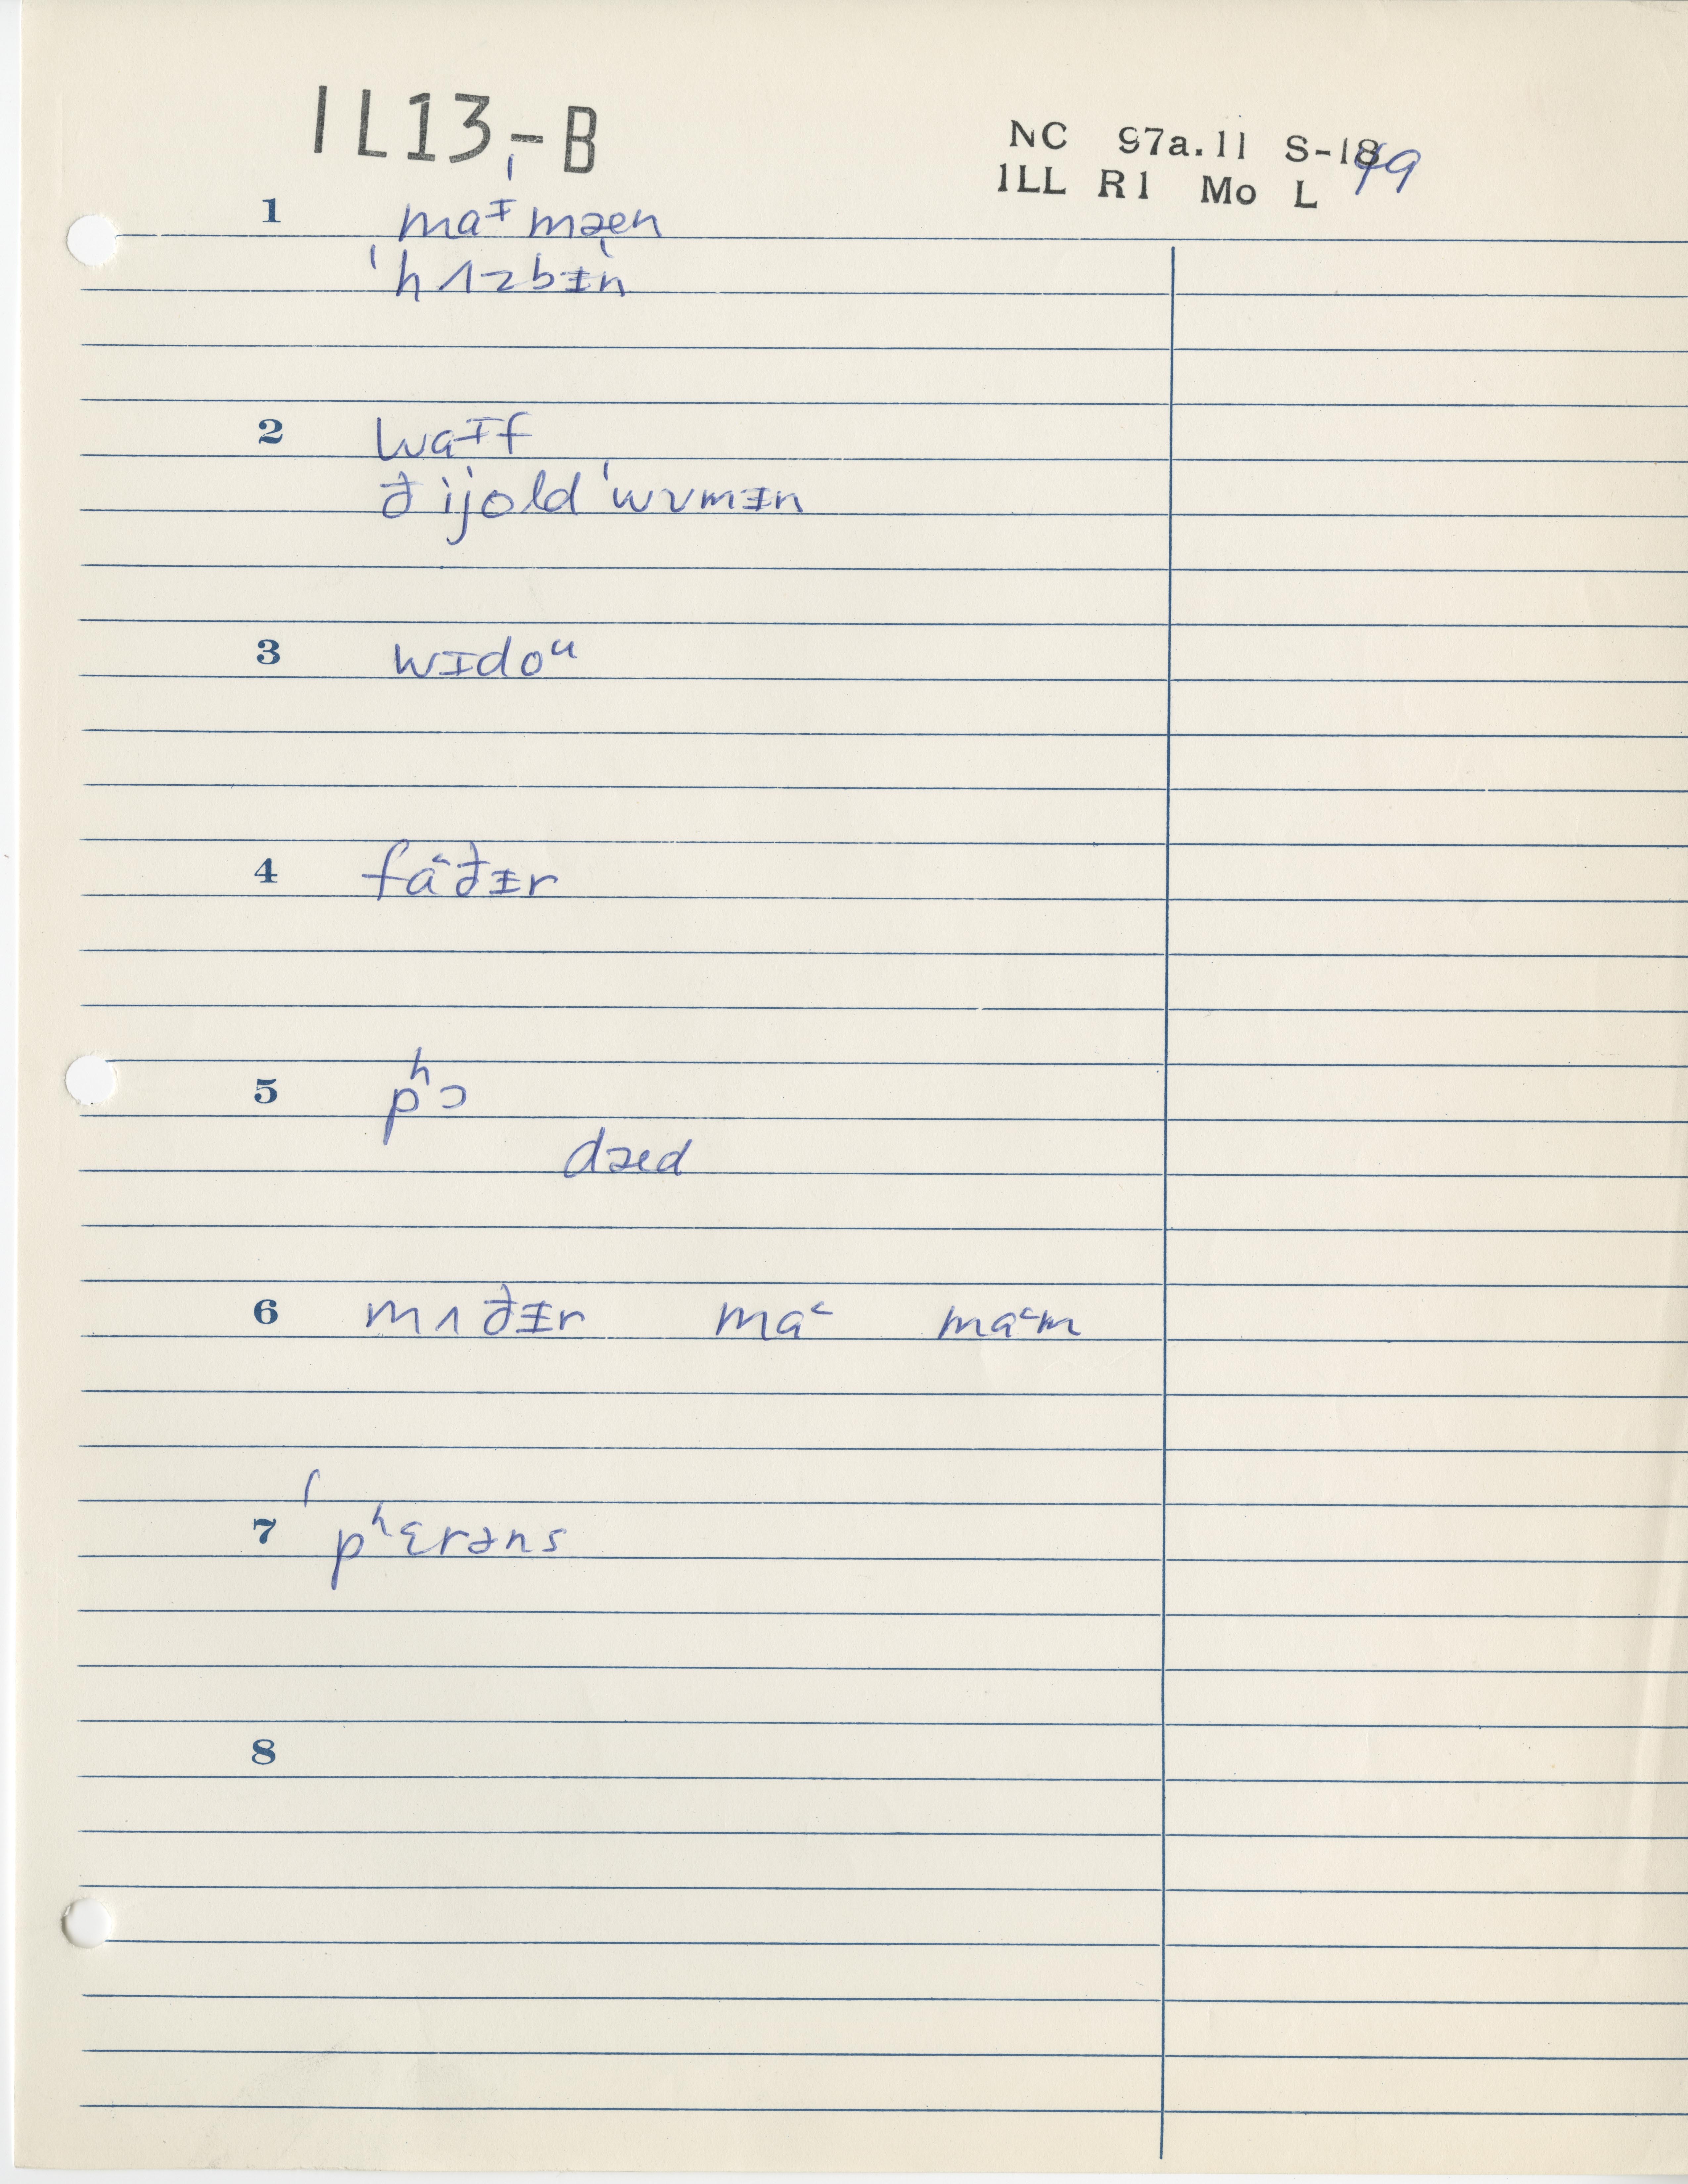 IL13-B
NC 97a.11 S-1849
ILL R1 Mo L
1 maᵻ ˈmæn
ˈhʌzbᵻn
2 waɪf
ðijold ˈwʊmᵻn
3 wɪdoᵘ
4 fa˂ðᵻr
5 pʰɔ
dæd
6 mʌðᵻr ma˂ ma˂m
7 ˈpʰɛrəns
8